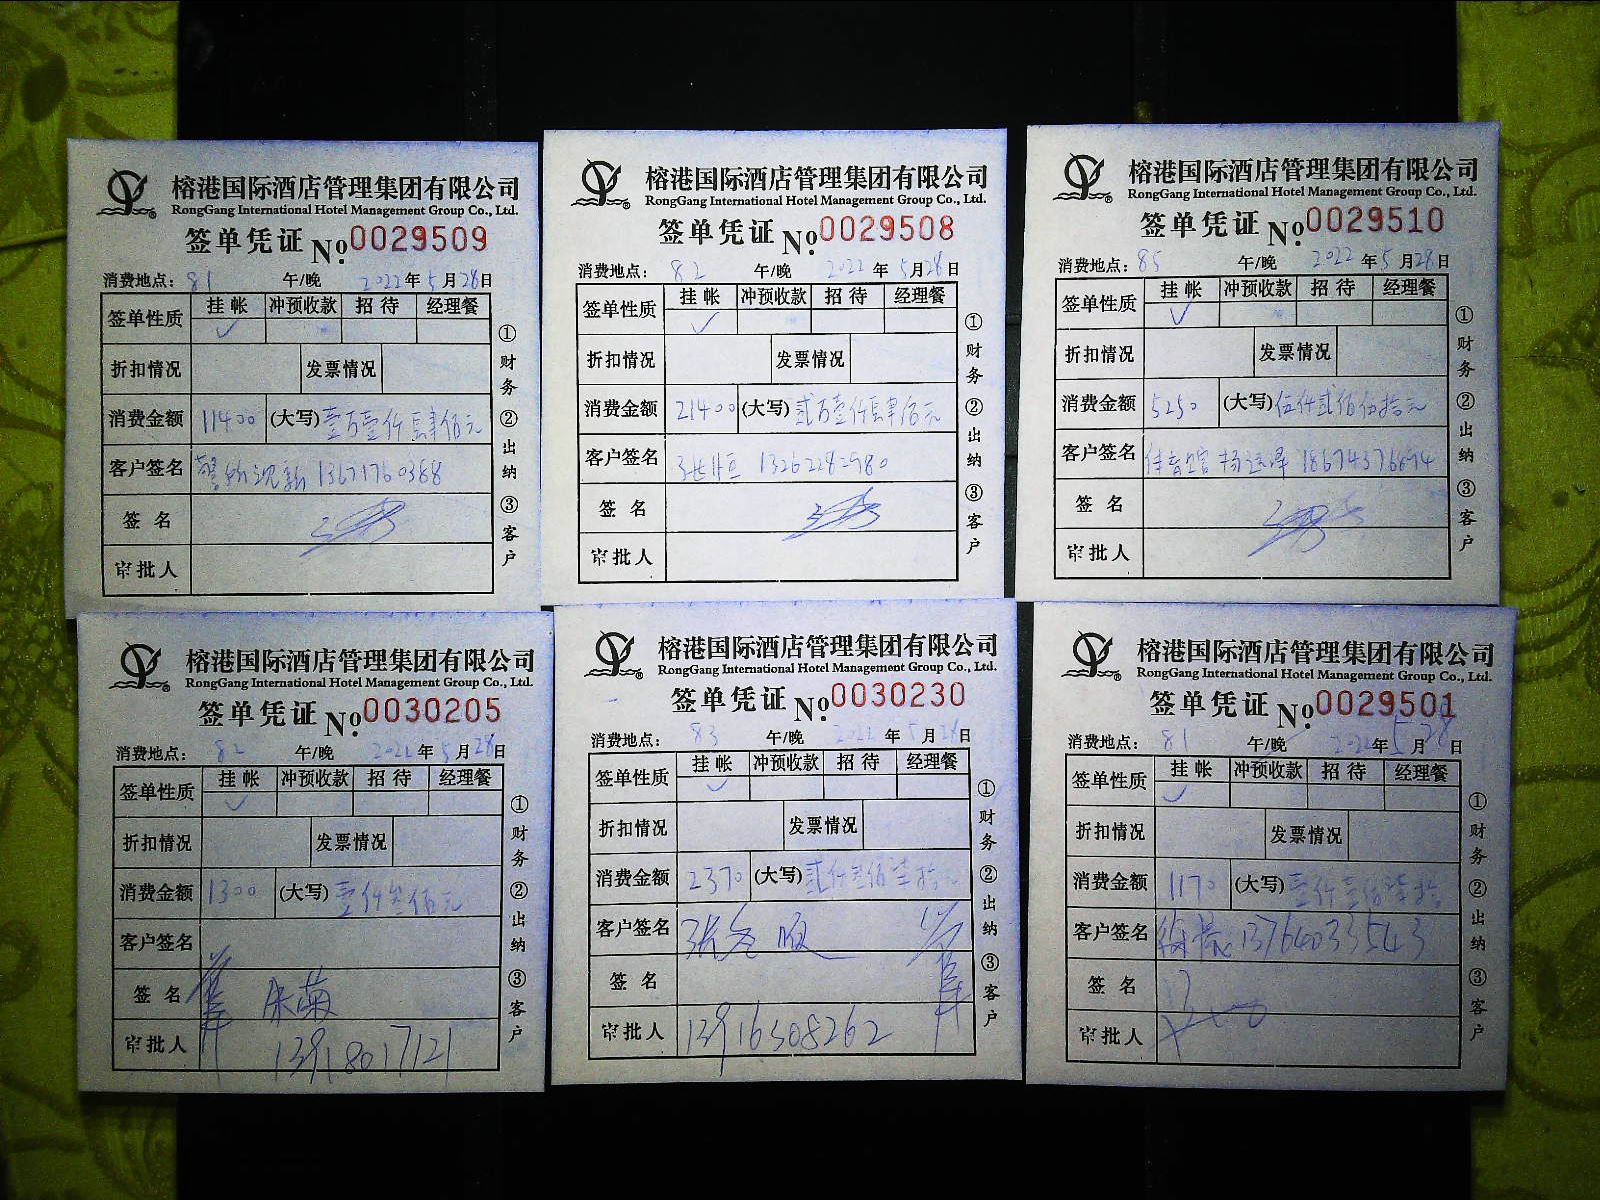 榕港国际酒店管理集团有限公司
RongGang International Hotel Management Group Co., Ltd.
签单凭证 No.0029509
消费地点: 81 午/晚 2022年5月28日
签单性质 挂帐 冲预收款 招待 经理餐
✓
折扣情况 发票情况
消费金额 11400 (大写) 壹万壹仟肆佰元
客户签名 13671760368
签名
审批人
①财务 ②出纳 ③客户
榕港国际酒店管理集团有限公司
RongGang International Hotel Management Group Co., Ltd.
签单凭证 No.0029508
消费地点: 82 午/晚 2022年5月28日
签单性质 挂帐 冲预收款 招待 经理餐
✓
折扣情况 发票情况
消费金额 21400 (大写) 贰万壹仟肆佰元
客户签名 13262282980
签名
审批人
①财务 ②出纳 ③客户
榕港国际酒店管理集团有限公司
RongGang International Hotel Management Group Co., Ltd.
签单凭证 No.0029510
消费地点: 85 午/晚 2022年5月28日
签单性质 挂帐 冲预收款 招待 经理餐
✓
折扣情况 发票情况
消费金额 5250 (大写) 伍仟贰佰伍拾元
客户签名 18674376694
签名
审批人
①财务 ②出纳 ③客户
榕港国际酒店管理集团有限公司
RongGang International Hotel Management Group Co., Ltd.
签单凭证 No.0030205
消费地点: 82 午/晚 2022年5月28日
签单性质 挂帐 冲预收款 招待 经理餐
✓
折扣情况 发票情况
消费金额 1300 (大写) 壹仟叁佰元
客户签名
签名 朱菊
审批人 13918017121
①财务 ②出纳 ③客户
榕港国际酒店管理集团有限公司
RongGang International Hotel Management Group Co., Ltd.
签单凭证 No.0030230
消费地点: 83 午/晚 2022年5月28日
签单性质 挂帐 冲预收款 招待 经理餐
✓
折扣情况 发票情况
消费金额 2370 (大写) 贰仟叁佰柒拾
客户签名
签名
审批人 13916308262
①财务 ②出纳 ③客户
榕港国际酒店管理集团有限公司
RongGang International Hotel Management Group Co., Ltd.
签单凭证 No.0029501
消费地点: 81 午/晚 2022年5月28日
签单性质 挂帐 冲预收款 招待 经理餐
✓
折扣情况 发票情况
消费金额 1170 (大写) 壹仟壹佰柒拾
客户签名 13764033543
签名
审批人
①财务 ②出纳 ③客户